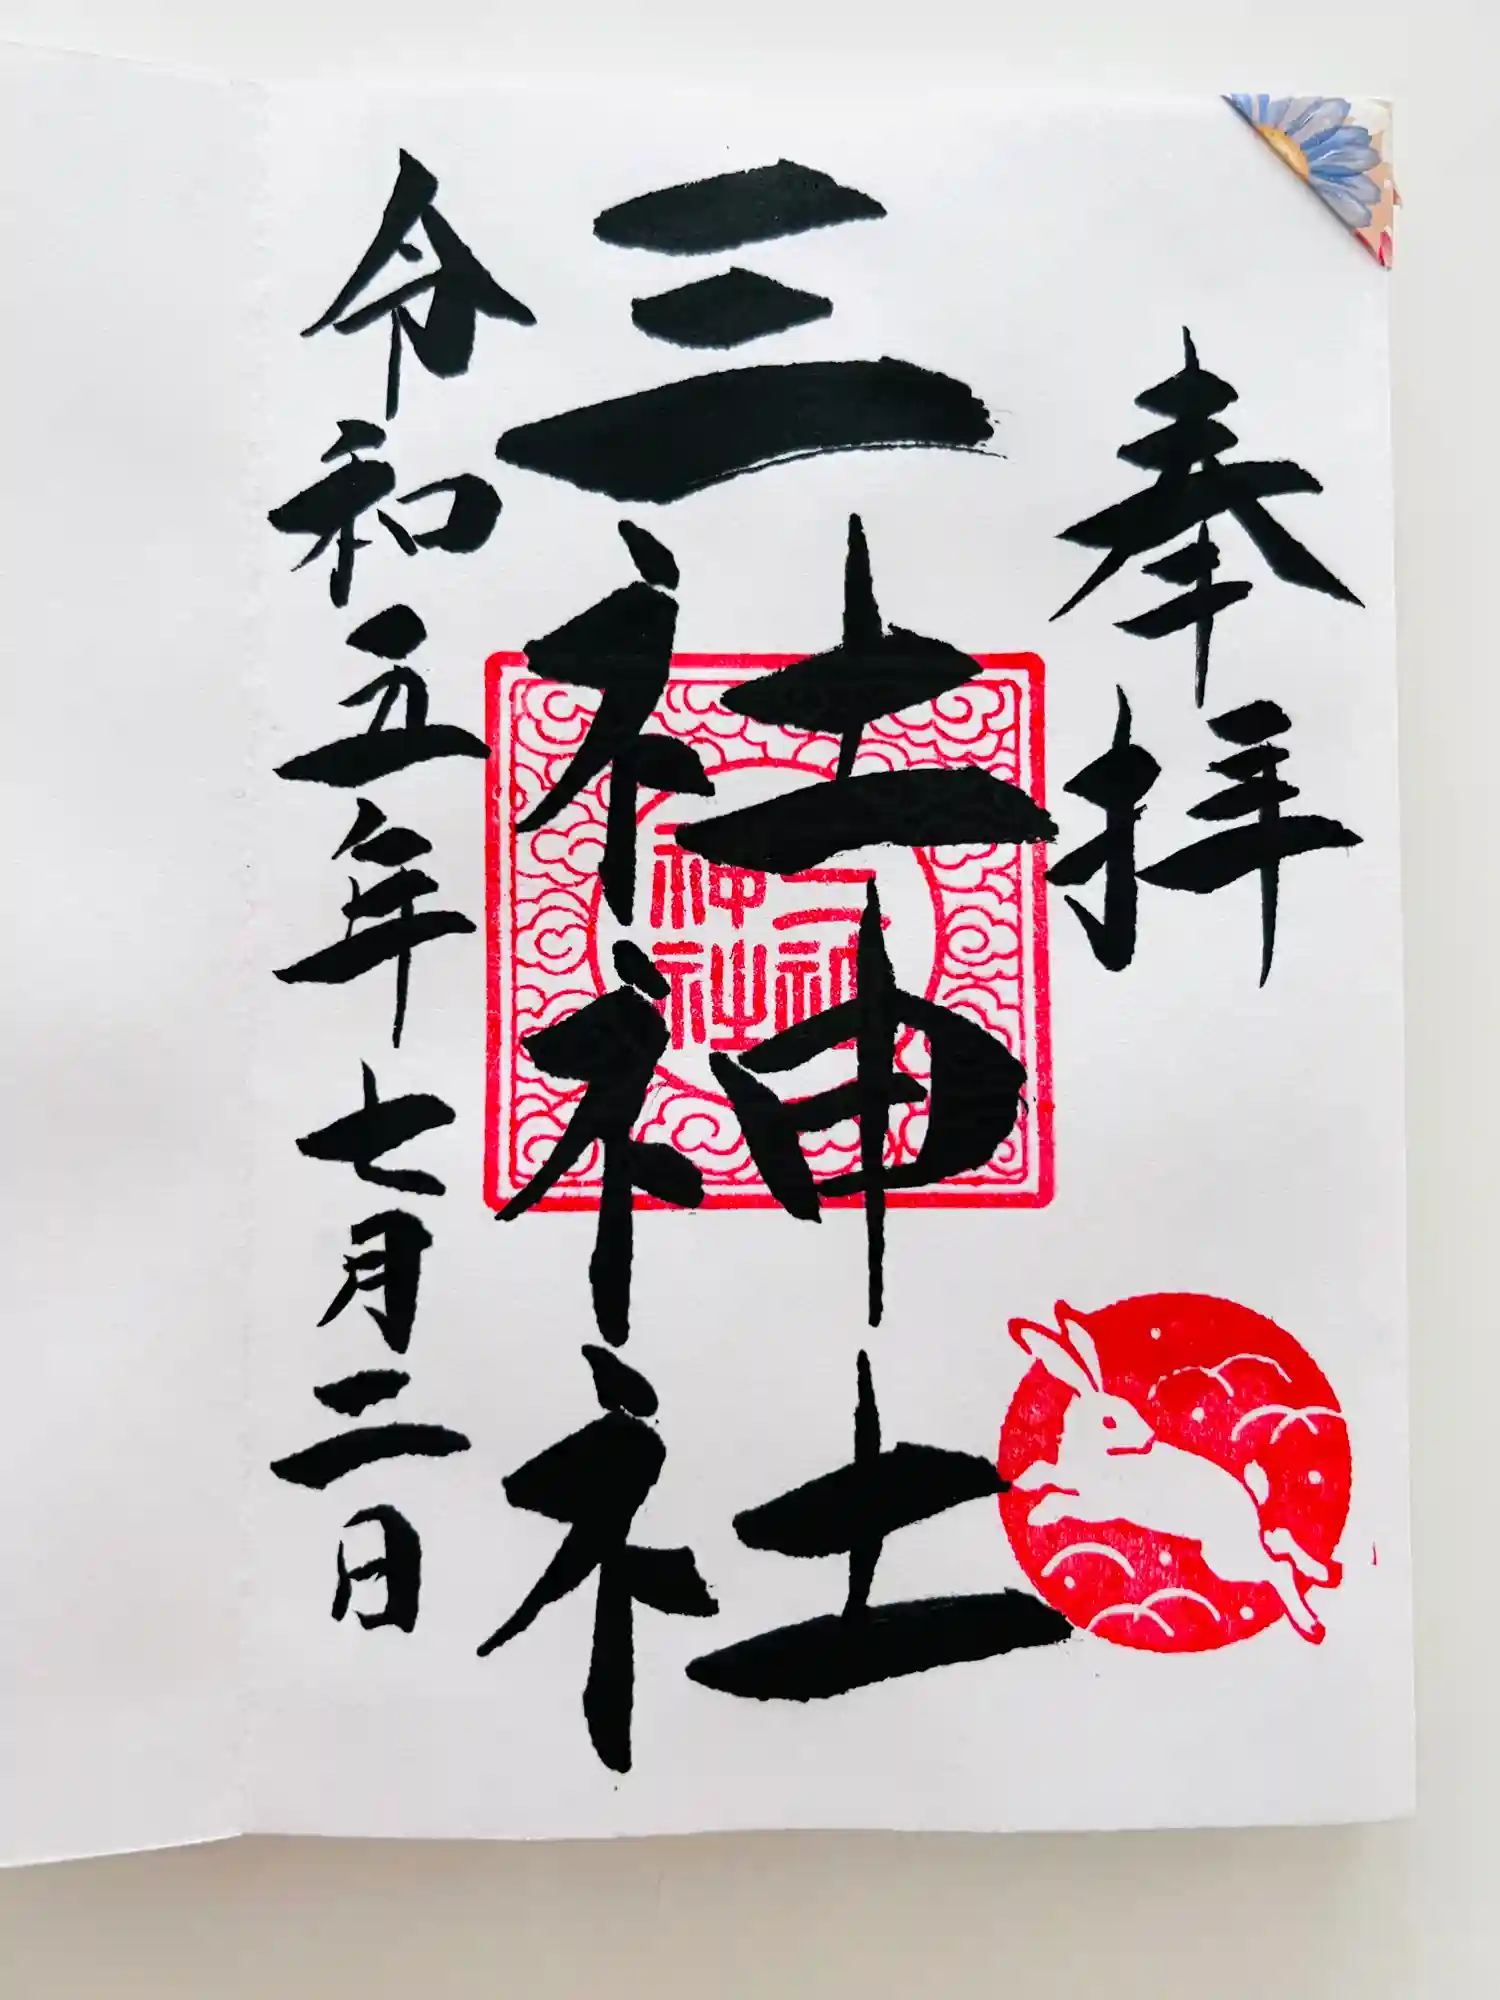 奉拝
三社神社
三社神社
令和五年七月二日